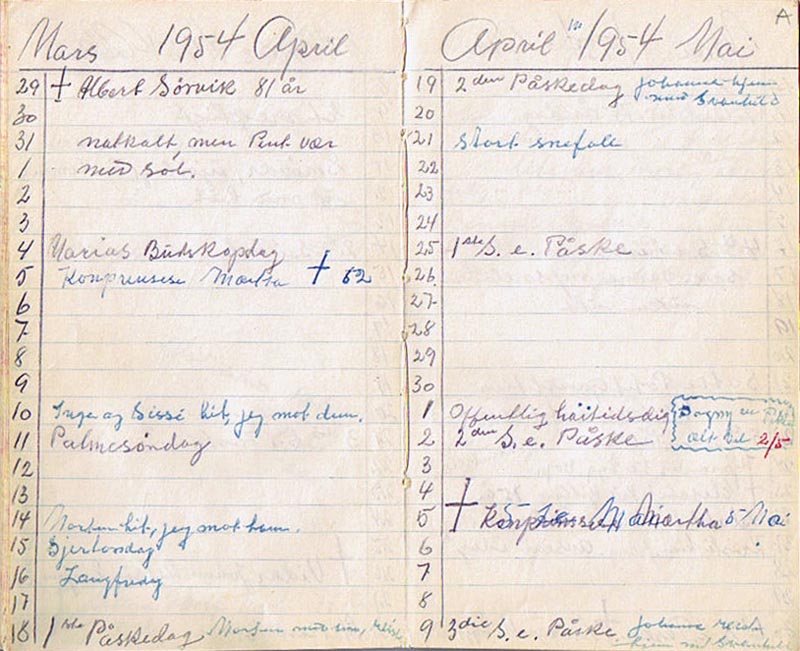 Mars 1954 April
29 † Albert Sørvik 81 år
30
31 natkalt, men Pent vær
1 med sol.
2
3
4 Marias Budskapdag
5 Konprinsese Mærtha † 52
6
7
8
9
10 Inge og Sissi hit, jeg mot dem.
11 Palmesöndag
12
13
14 Morten hit, jeg mot ham.
15 Sjertorsdag
16 Langfredag
17
18 1ste Påskedag Morten
April 1954 Mai
A
19 2den Påskedag Johanna hjem
med Svanhild
20
21 Stort snefall
22
23
24
25 1ste S. e. Påske
26
27
28
29
30
1 Offentlig höitidsdig Dagny
2 2den S. e. Påske 2/5
3
4
5 † Mærtha 5 Mai
6
7
8
9 3die S. e. Påske Johanna
hjem md Svanhild